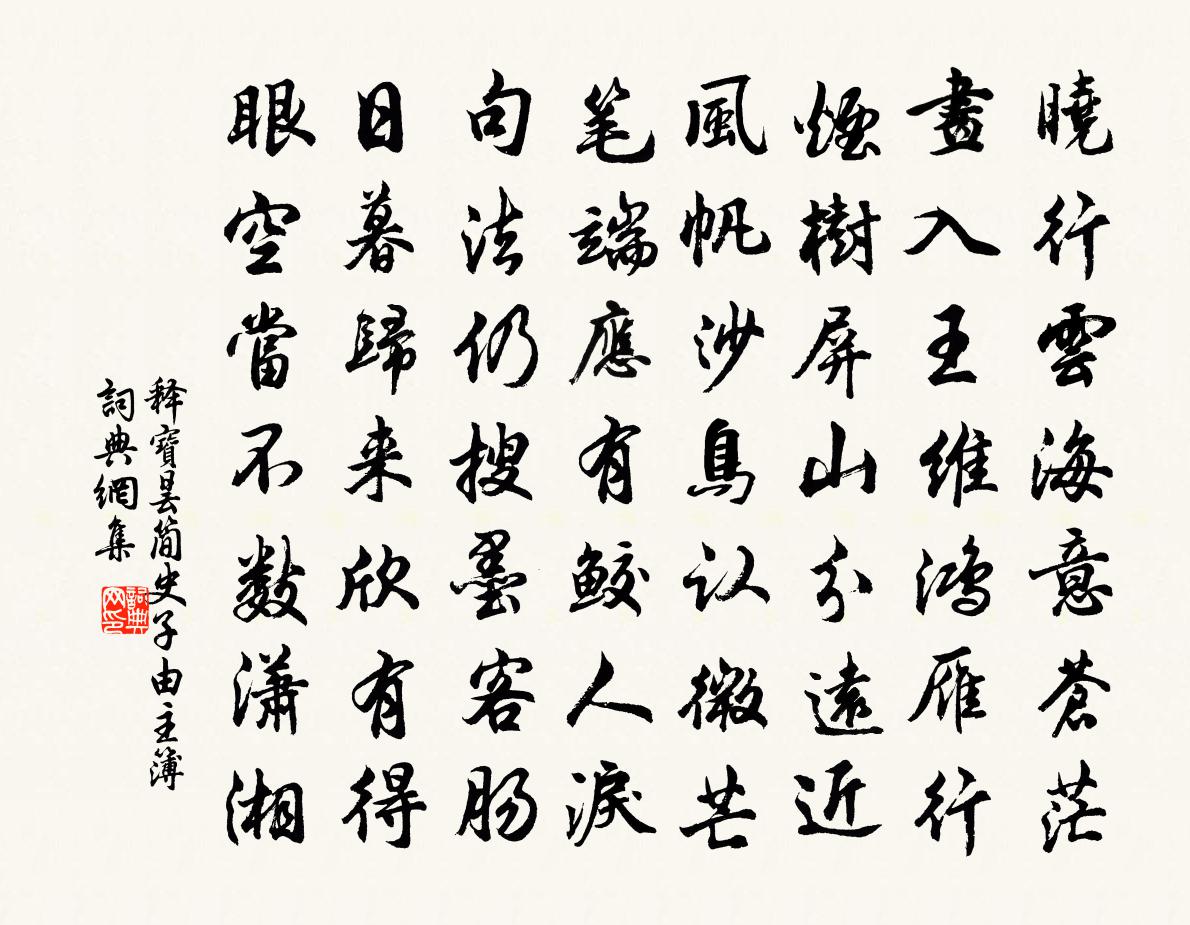 曉行雲海意蒼茫
畫入王維鴻雁行
煙樹屏山分遠近
風帆沙鳥认微芒
笔端應有鲛人淚
句法仍搜墨客肠
日暮歸来欣有得
眼空當不數瀟湘
释寶曇简史子由主簿
詞典網集
詞典
网印